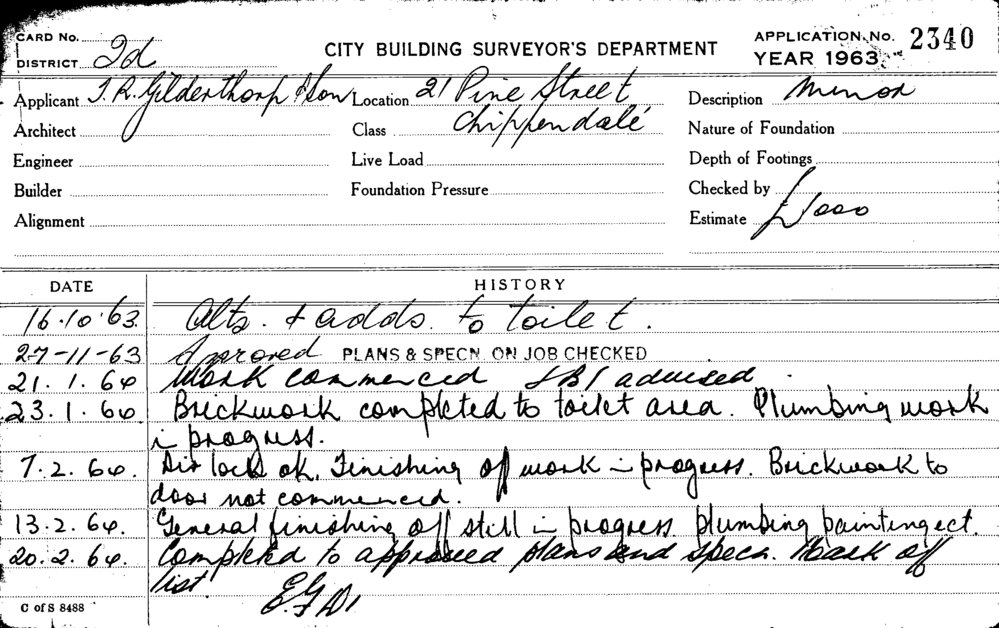 CARD No.
DISTRICT 2d
CITY BUILDING SURVEYOR'S DEPARTMENT
APPLICATION No. 2340
YEAR 1963
Applicant J. R. Gilderthorp & Son Location 21 Pine Street Description Minor
Architect Class Chippendale Nature of Foundation
Engineer Live Load Depth of Footings
Builder Foundation Pressure Checked by
Alignment Estimate £1000
DATE HISTORY
16.10.63. Alts. & adds. to toilet.
27-11-63 Approved PLANS & SPECN. ON JOB CHECKED
21.1.64 Work commenced advised.
23.1.64 Brickwork completed to toilet area. Plumbing work
in progress.
7.2.64. Air lock ok, Finishing off work in progress. Brickwork to
door not commenced.
13.2.64. General finishing off still in progress plumbing painting ect.
20.2.64. Completed to approved plans and specn. Mark off
list.
C of S 8488